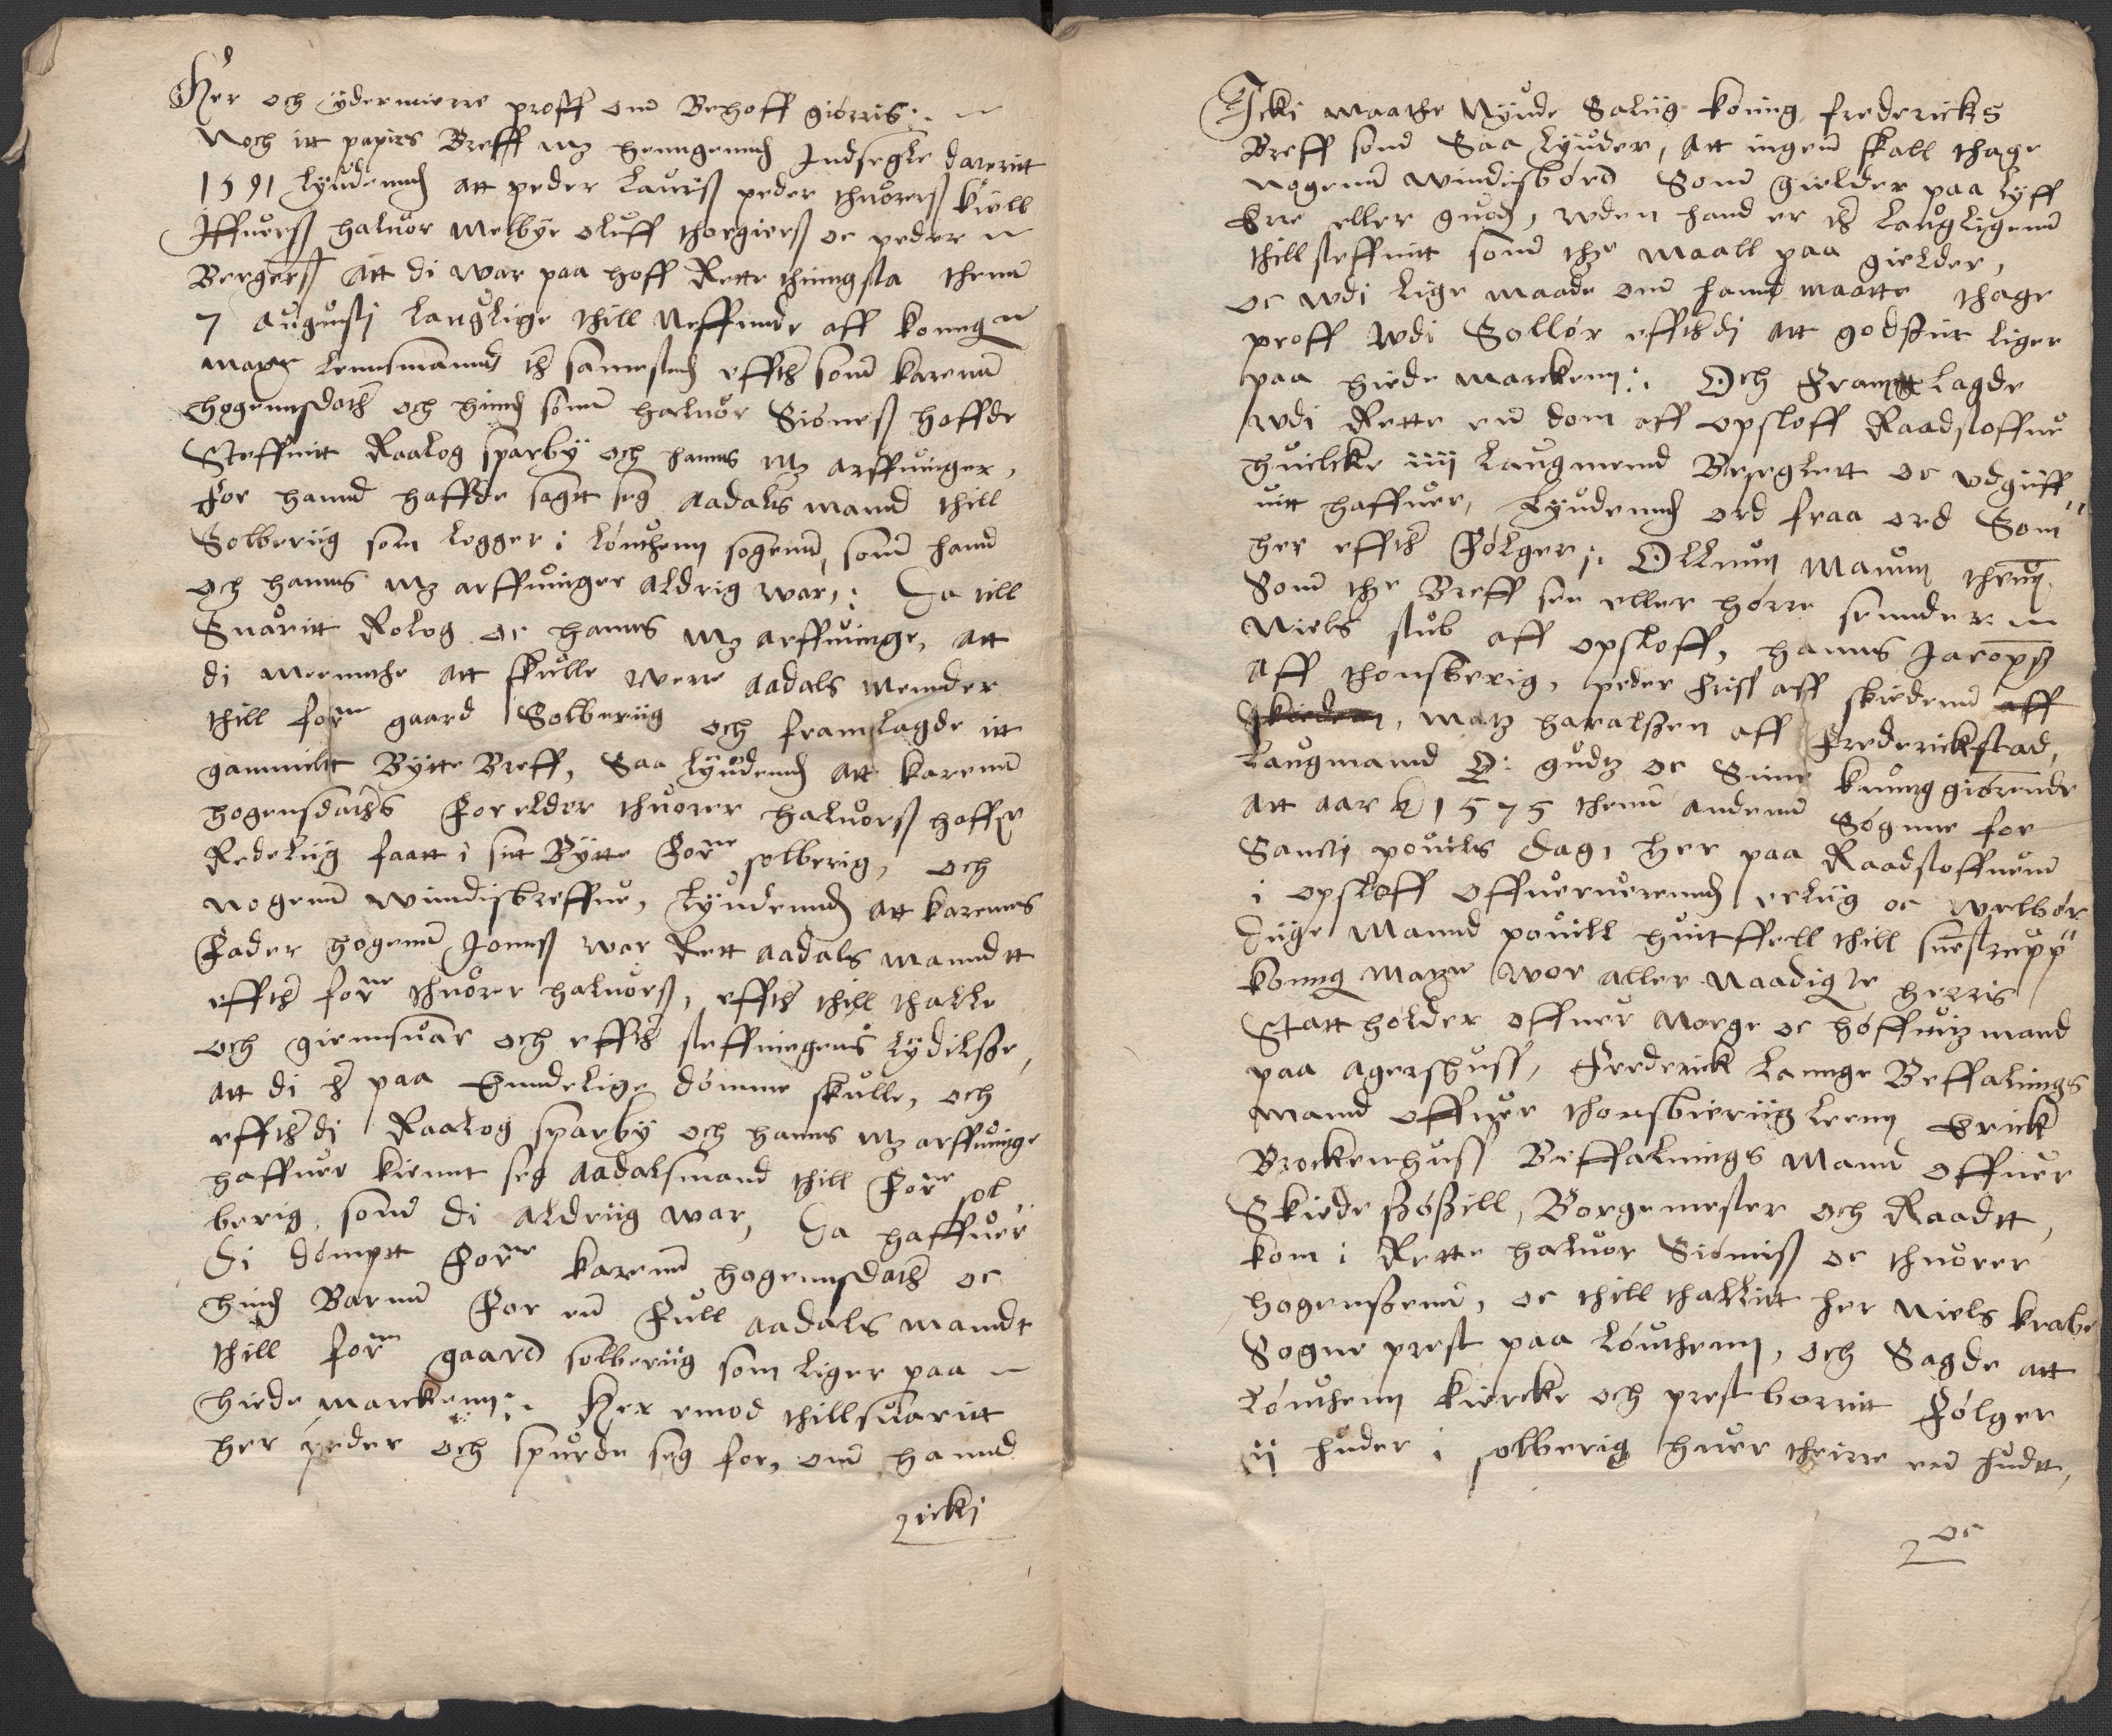 Her och ÿdermierre proff om Behoff giørris:
Noch itt papirs Breff mz henngennd Indsegle daterit
1591 lÿudennd att peder lauriß peder thuorerß kiell
Iffuerß haluor melbÿe oluff thorgierß oc peder
Bergerß att di war paa hoff Rette thingsta thenn
7 augustj lauglige thill Neffnnde aff konng
maÿe lennsmannd th samesteds effther som karenn
hogennsdather och hinds som haluor Sioneß hoffde
Steffnitt Raalog sparbÿ och hanns mz arffuinger,
For hannd haffde sagtt seg aadals mannd thill
Solberiig som legger i Løuthenn sogenn, som hand
och hanns mz arffuinger aldrig war: Da till
Suaritt Rolog oc hanns mz arffuinge, att
di meennthe att skulle were aadals mennder
thill forne gaard Solberiig och framlagde itt
gammilt Bÿtte Breff, Saa lÿudennd att karenn
hogensdathers Forelder thuorer haluorß haffr
Redeliig faatt i sit Bÿtte Forne solberig, och
nogenn windisbreffue, lÿudennd att karenns
Fader hogenn Jonnß war Rett aadals manndtt
effther forne thuorer haluorß, effther thill thalle
och giennsuar och effther steffningens lÿdilße,
att di ther paa Enndelige dømme skulle, och
efftherdj Raalog sparbÿ och hanns mz arffuinge
haffuer kiennt seg aadalsmand thill Forne sol
berig, som di aldriig war, Da haffuer
di dømptt Forne karenn hogennsdather oc
hinds Barnn For en Full aadals manndt
thill forne gaard solberiig som liger paa
hiede marckenn: Her emod thillsuaritt
her peder och spurde seg for, om hannd
icki
Icki maathe Nÿude Saliig koning fredericks
Breff som Saa lÿuder, att ingenn skall thage
nogenn windisbørd Som gielder paa lÿff
Ere eller guods, uden hand er th laugligenn
thillsteffnitt som the maall paa gielder,
oc udi lige maade om hannd maatte thage
proff udi Sollør effterdj att godsit liger
paa hiede marckenn: Och Framlagde
udi Rette en dom aff opsloff Raadstoffue
huilcke iiij laugmennd Beseglett oc udgiiff
uitt haffuer, Lÿudennd ord fraa ord Som
her effther Følger: Ollum mannum thenn
Som the Breff see eller hørre sennder
Niels stub aff opsloff, hanns Jacopß
aff thonsberig, peder friss aff skiedenn aff
skiedenn, matz haralßen aff Frederickstad,
Laugmannd Q: gudz oc Sine kunnggiørende
att aar 1575 thenn andenn Søgnne for
Sanctj pouils dag, her paa Raadstoffuenn
i opsloff offueruerennd erliig oc welbør
diige mannd pouill huitffell thill suestrupp
konng maÿe wor aller naadigste herris
Statholder offuer Norge oc høffuitzmand
paa agershuss, Frederick Lannge Beffalings
mannd offuer thonsbieriigz leenn Erick
Brockenhuss Beffalnings mannd offuer
Skiede sÿßill, Borgemester och Raadtt,
kom i Rette haluor Siøniß oc thuorer
hogenßenn, oc thill thallitt her Niels krabe
Sogne prest paa løuthenn, och Sagde att
Løuthenn kiercke och prestborritt Følger
ij huder i solberig huer thrire en hudtt,
oc